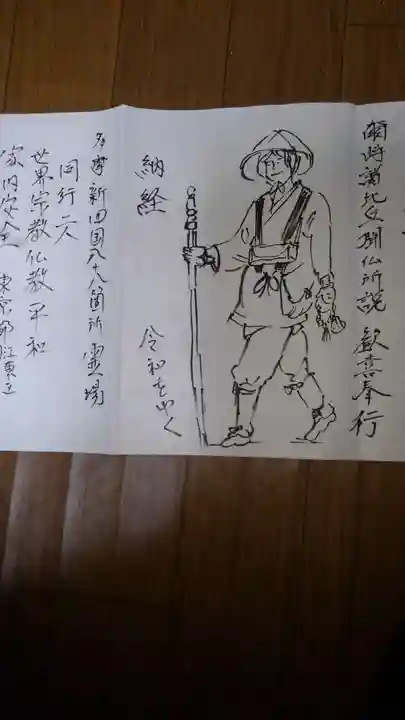 爾時諸比丘聞仏所説 歓喜奉行
令和をゆく
納経
多摩新四国八十八箇所 霊場
同行二人
世界宗教仏教平和
家内安全 東京都江東区